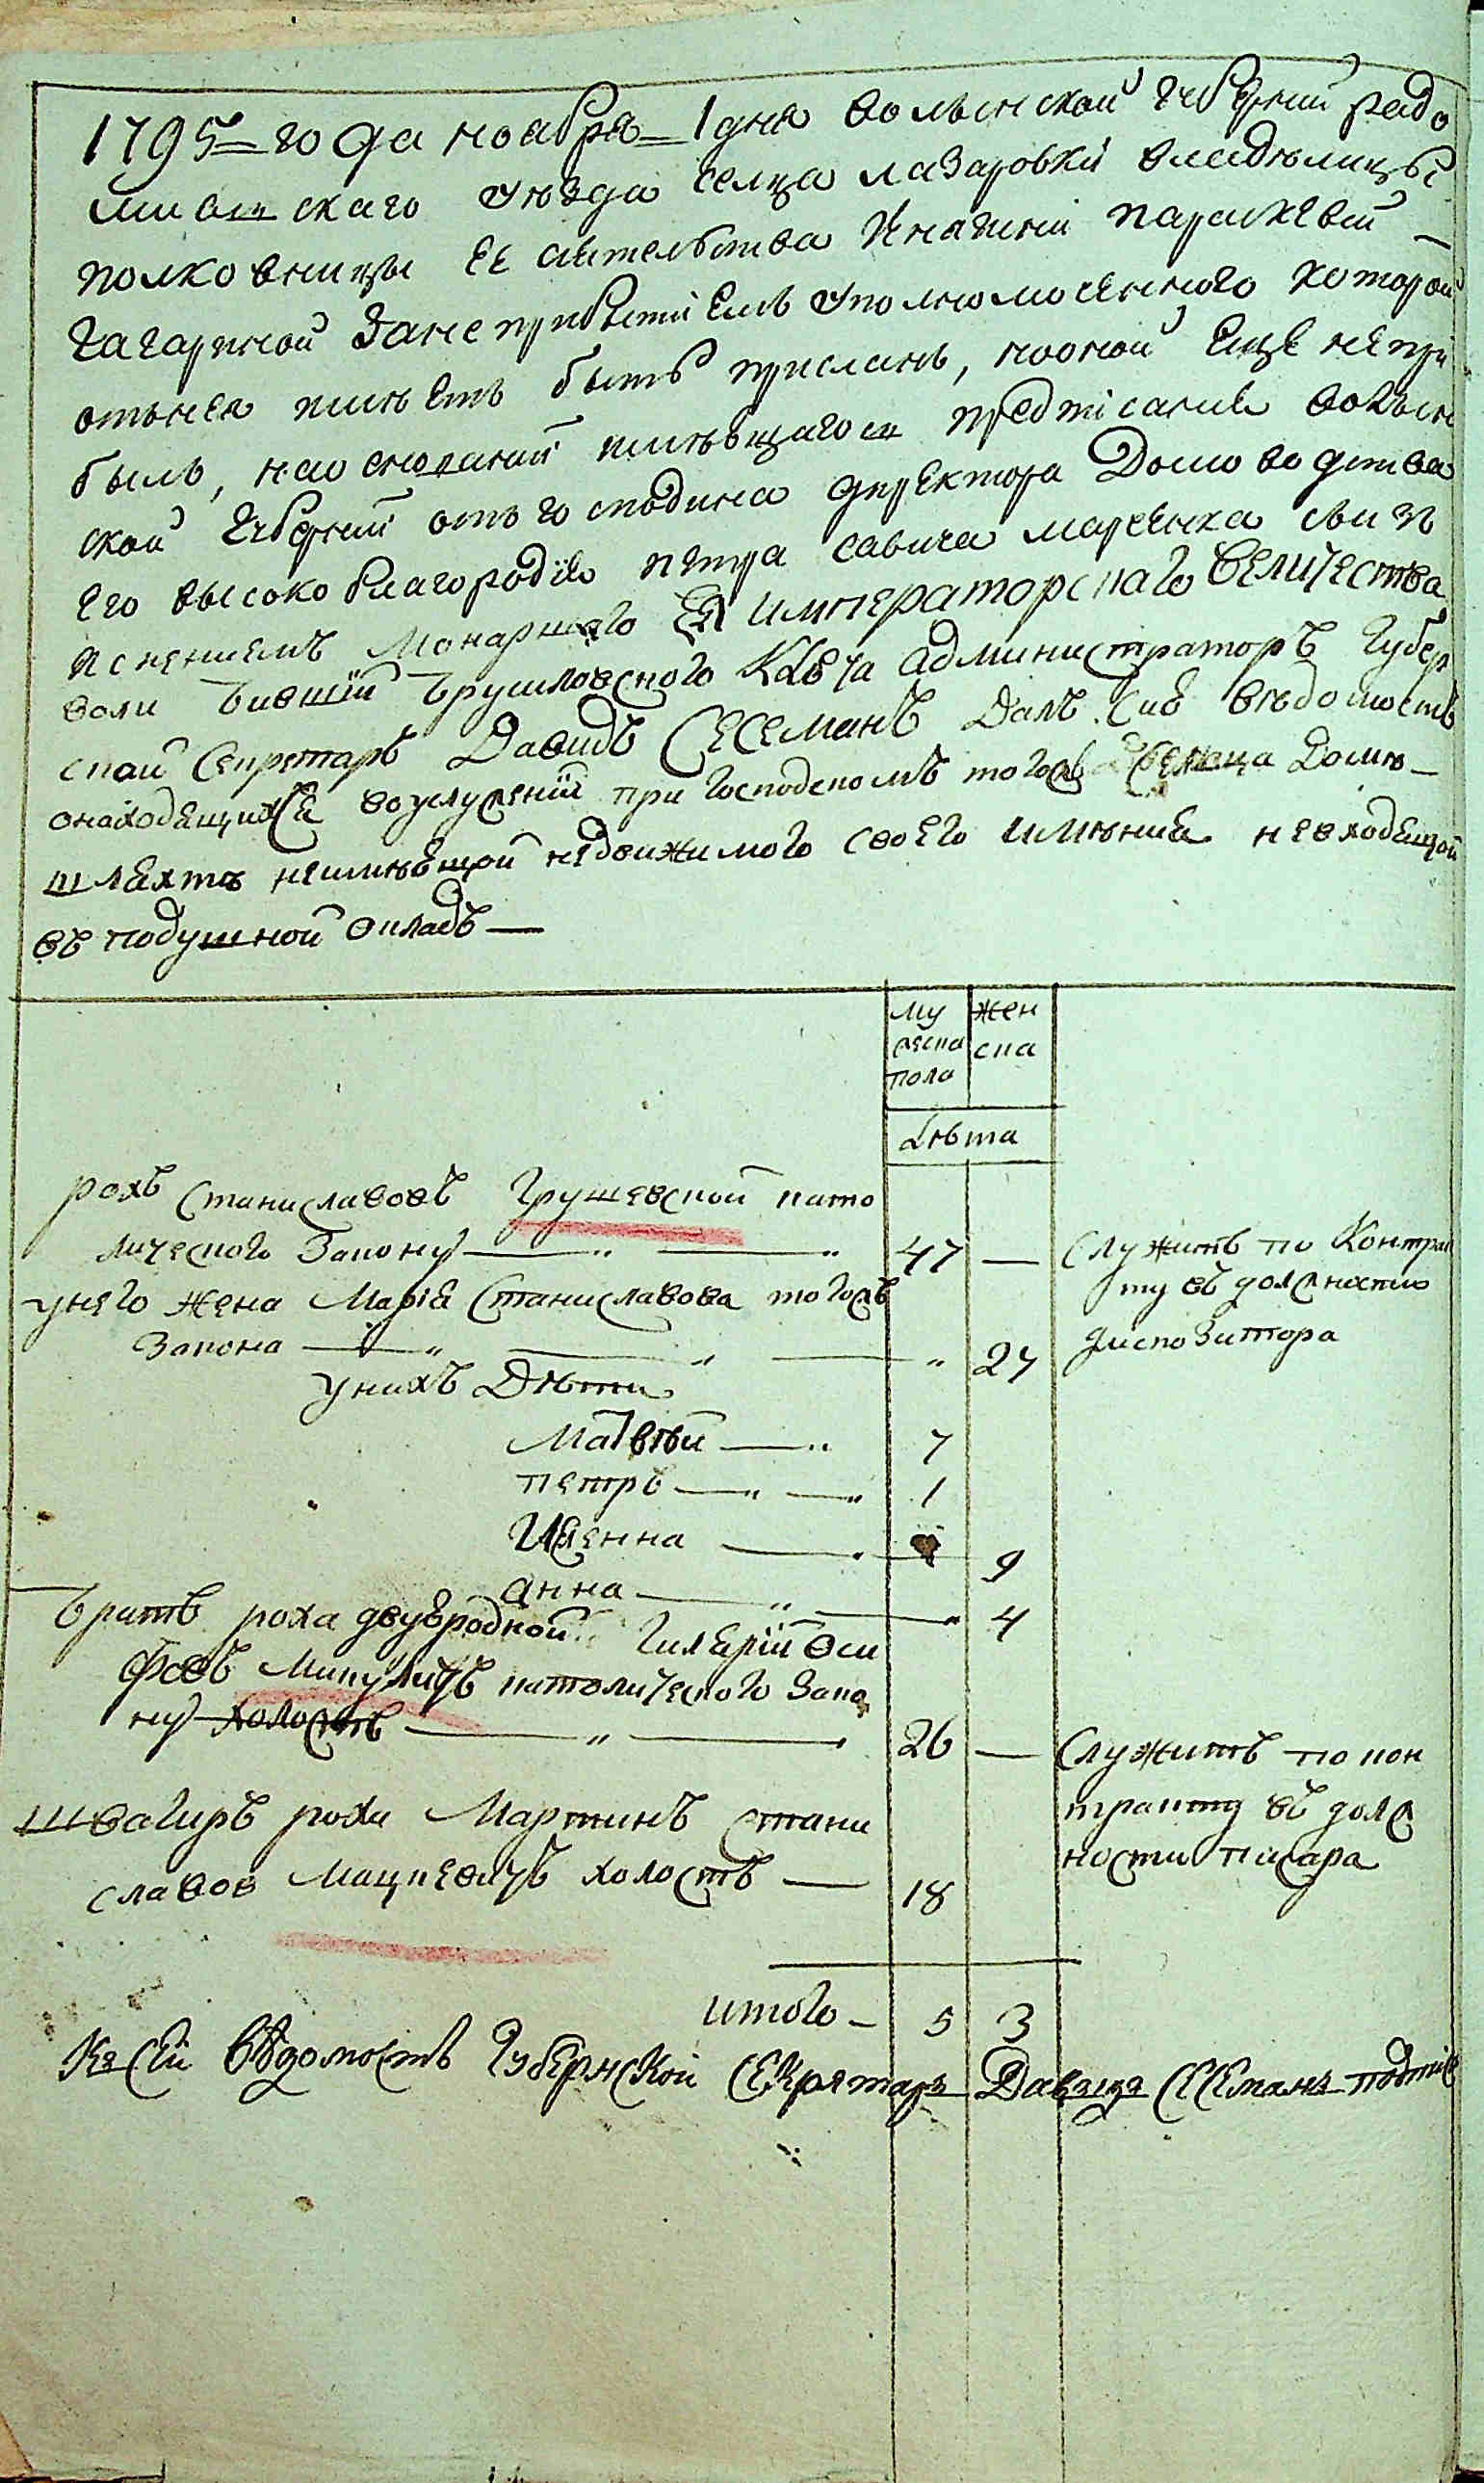 1795=года ноабря=1 дня волынской губернии радо
мисльскаго уѣзда селца лазаровки владѣлицы
полковницы ее сиятельства княгини параскевии
гагариной за неприбытіемъ уполномоченного которой
отънея имѣетъ быть присланъ, но оной еще непри
былъ, на основании имѣющагося предписания волын
ской губернии отъ господина директора домоводства
его высокоблагородия петра савича марченка съ изъ
яснениемъ Монаршего Ея императорскаго величества
воли бившій брушловского Ключа администраторъ Губер
ской секретарь Давидъ Сесеманъ Далъ сие вѣдомость
онаходящихся воуслужении при Господскомъ тогожъ селца Домѣ
шляхтѣ неимѣющой недвижимого своего имѣния невходящой
въ подушной окладъ —
му жескa пола
жен ска
Лѣта
рохъ Станиславовъ Грушевской като
лического Закону — " — " 47 — Служитъ по Контрак
ту въ должностѣ
диспозитора
унего жена Марія Станиславова тогожъ
Закона — " — " — " 27
унихъ Дѣти
Матвѣй — " 7
петръ — " — " 1
Иленна — 9
анна — " — " 4
братъ роха двуюродной Гиляріи Оси
фовъ Микуличъ католического Зако
ну холостъ — " — 26 — Служитъ по кон
тракту въ долж
ности писара
швагиръ роха Мартинъ Стани
славов Мацкевичъ холостъ — 18
итого — 5 3
Къ сей вѣдомость Губернской Секретарь Давидъ Сесеманъ подпис